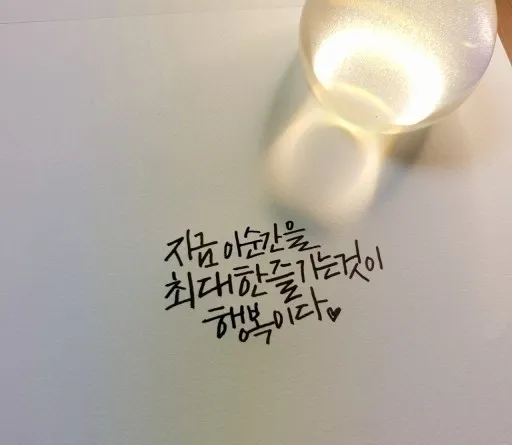 지금 이순간을
최대한 즐기는것이
행복이다♥